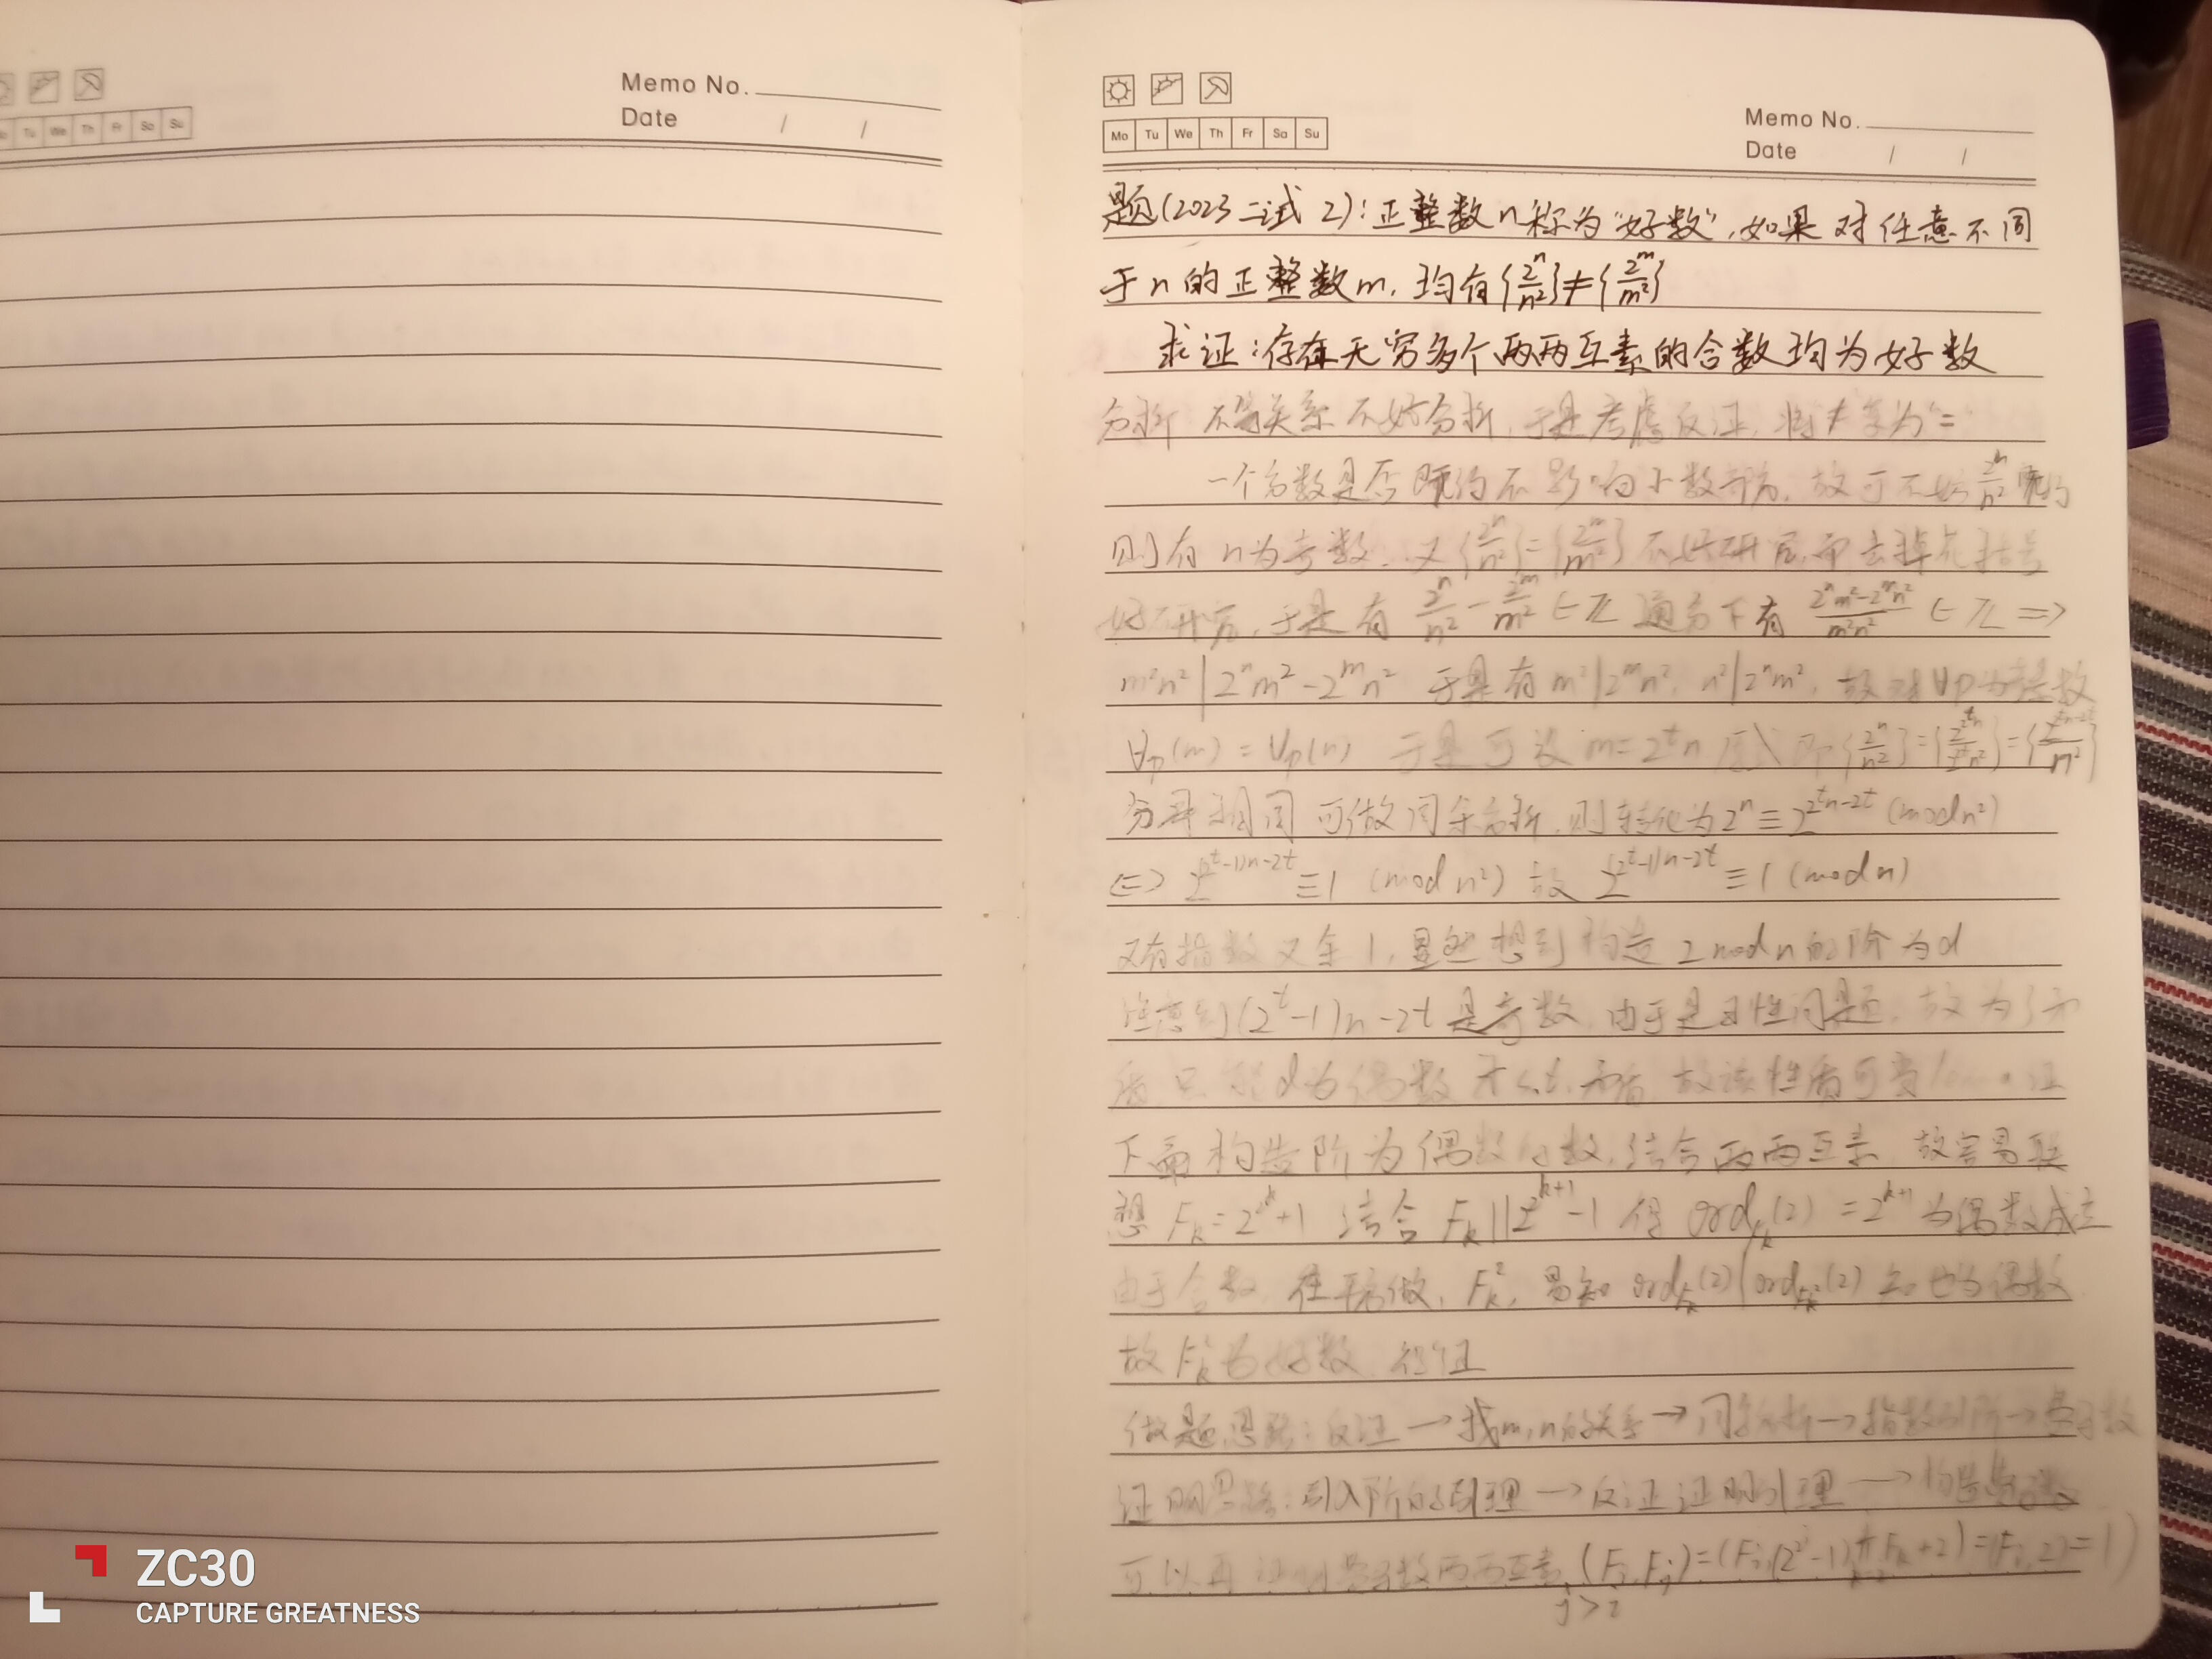 Memo No.
Date / /
Tu We Th Fr Sa Su
Memo No.
Date / /
Mo Tu We Th Fr Sa Su
题(2023二试 2):正整数n称为“好数”,如果对任意不同
于n的正整数m,均有{2^n/n²}≠{2^m/m²}
求证:存在无穷多个两两互素的合数均为好数
分析 不等关系不好分析,于是考虑反证,将≠ 为=
一个分数是否既约不影响小数部分,故可不妨2^n/n²既约
则有n为奇数,又{2^n/n²}={2^m/m²}不好研究,而去掉花括号
好研究,于是有 2^n/n² - 2^m/m² ∈ Z 通分下有 (2^n m²-2^m n²)/(m²n²) ∈ Z ⇒
m²n² | 2^n m² - 2^m n² 于是有 m²|2^m n², n²|2^n m², 故对∀p为
Vp(m) = Vp(n) 于是可设 m=2^t n 即{2^n/n²}= =
分母相同 可做同余分析,则转化为 2^n ≡ 2^(2^t n-2t) (mod n²)
<=> 2^((2^t-1)n-2t) ≡ 1 (mod n²) 故 2^((2^t-1)n-2t) ≡ 1 (mod n)
又有指数又余1,显然想到构造 2 mod n 的阶为d
注意到(2^t-1)n-2t是奇数,由于是 性问题,故为了矛
盾只 d为偶数 矛盾,故该性质可
下面构造阶为偶数 数,结合两两互素,故容易联
想 F_k=2^(2^k)+1 结合 F_k||2^(2^(k+1))-1 得 ord_(F_k)(2) = 2^(k+1) 为偶数成立
由于合数,在平方做,F_k²,易知 ord_(F_k)(2)|ord_(F_k²)(2) 知也为偶数
故F_k²为好数 得证
做题思路:反证→找m,n的关系→同余分析→指数 阶→费马数
证明思路:引入阶的引理→反证证明引理→构造
可以再证明费马数两两互素 (F_i,F_j)= =(F_i,2)=1)
j>i
ZC30
CAPTURE GREATNESS